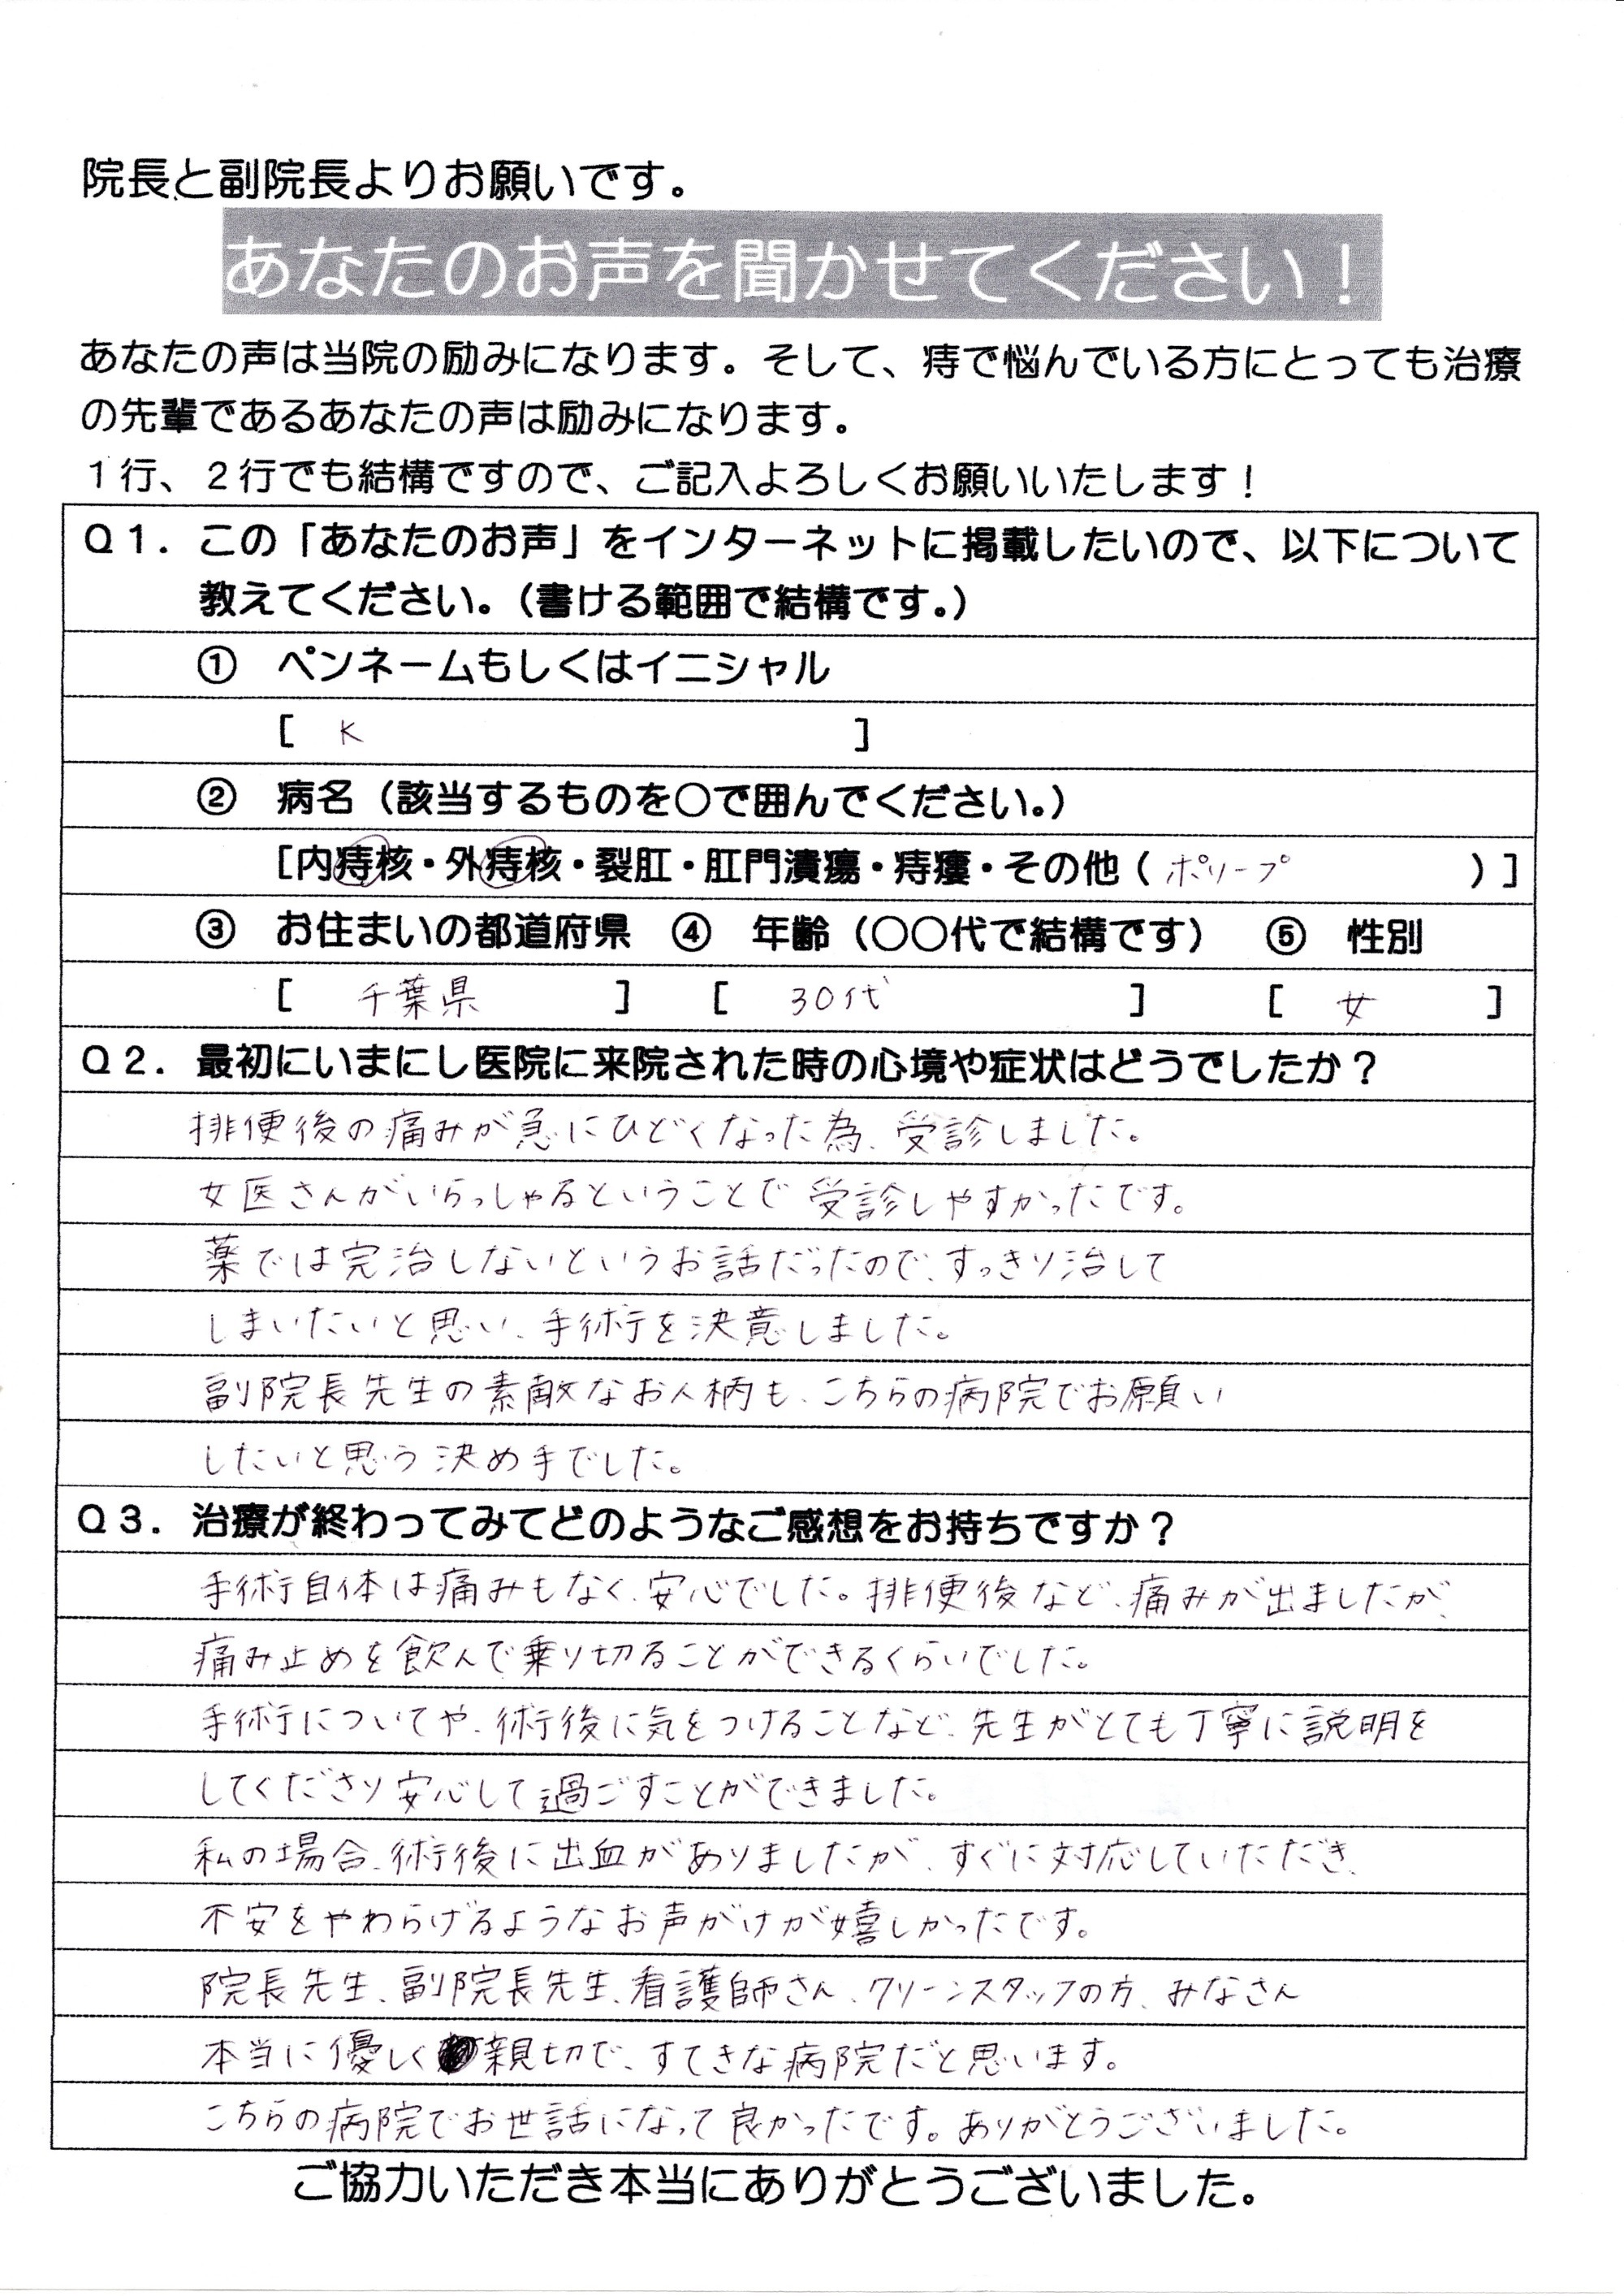 院長と副院長よりお願いです。
あなたのお声を聞かせてください！
あなたの声は当院の励みになります。そして、痔で悩んでいる方にとっても治療
の先輩であるあなたの声は励みになります。
１行、２行でも結構ですので、ご記入よろしくお願いいたします！
Ｑ１．この「あなたのお声」をインターネットに掲載したいので、以下について
教えてください。（書ける範囲で結構です。）
① ペンネームもしくはイニシャル
［ K ］
② 病名（該当するものを○で囲んでください。）
［内痔核・外痔核・裂肛・肛門潰瘍・痔瘻・その他（ ポリープ ）］
③ お住まいの都道府県 ④ 年齢（○○代で結構です） ⑤ 性別
［ 千葉県 ］ ［ 30代 ］ ［ 女 ］
Ｑ２．最初にいまにし医院に来院された時の心境や症状はどうでしたか？
排便後の痛みが急にひどくなった為、受診しました。
女医さんがいらっしゃるということで受診しやすかったです。
薬では完治しないというお話だったので、すっきり治して
しまいたいと思い、手術を決意しました。
副院長先生の素敵なお人柄も、こちらの病院でお願い
したいと思う決め手でした。
Ｑ３．治療が終わってみてどのようなご感想をお持ちですか？
手術自体は痛みもなく、安心でした。排便後など、痛みが出ましたが、
痛み止めを飲んで乗り切ることができるくらいでした。
手術についてや、術後に気をつけることなど、先生がとても丁寧に説明を
してくださり安心して過ごすことができました。
私の場合、術後に出血がありましたが、すぐに対応していただき、
不安をやわらげるようなお声がけが嬉しかったです。
院長先生、副院長先生、看護師さん、クリーンスタッフの方、みなさん
本当に優しく親切で、すてきな病院だと思います。
こちらの病院でお世話になって良かったです。ありがとうございました。
ご協力いただき本当にありがとうございました。